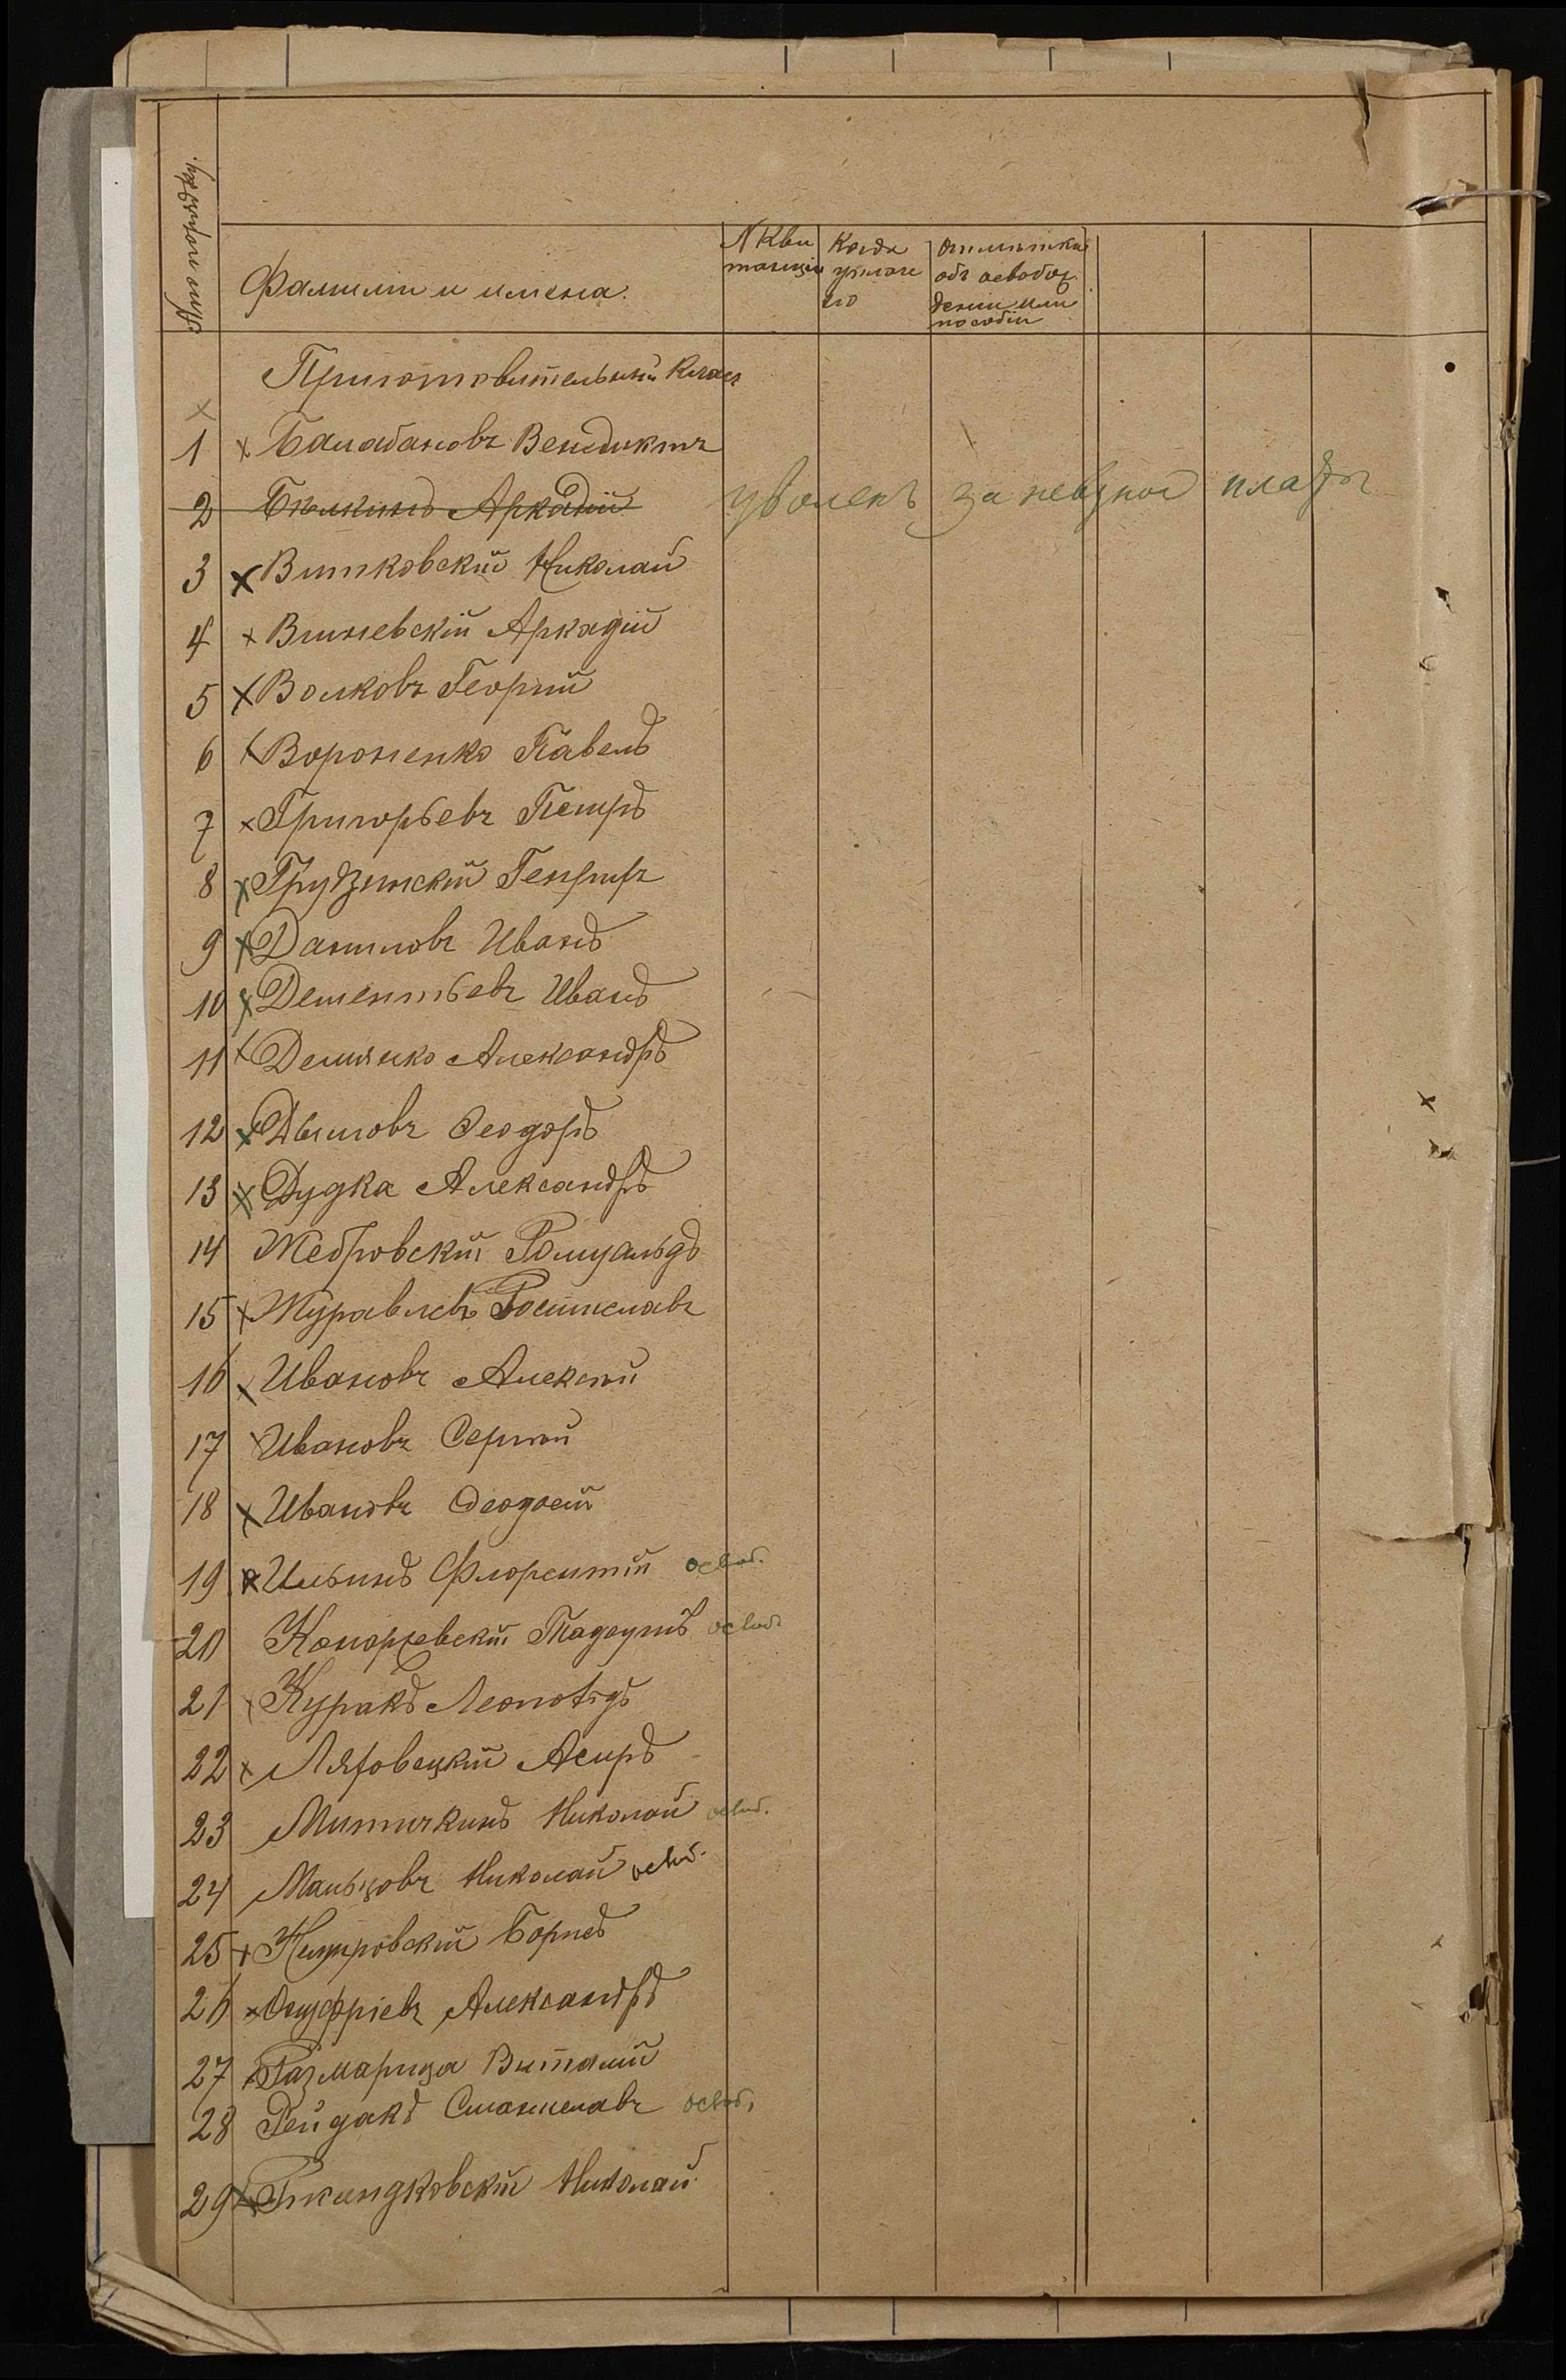 № по порядку.
Фамилии и имена.
№ Кви
танціи
Когда
уплаче
но
Отмѣтка
объ освобож
деніи или
пособіи
Приготовительный Классъ
1 × Балабановъ Венедиктъ
2 Бѣлкинъ Аркадій уволенъ за невзнос платы
3 × Витковскій Николай
4 × Вишневскій Аркадій
5 × Волковъ Георгій
6 × Вороненко Павелъ
7 × Григорьевъ Петръ
8 × Грудзинскій Генрихъ
9 × Даниловъ Иванъ
10 × Дементьевъ Иванъ
11 × Демченко Александръ
12 × Дымовъ Ѳеодоръ
13 × Дудка Александръ
14 Жебровскій Ромуальдъ
15 × Журавлевъ Ростиславъ
16 × Ивановъ Алексѣй
17 × Ивановъ Сергѣй
18 × Ивановъ Ѳеодосій
19 × Ильинъ Флорентій освоб.
20 Конаржевскій Тадеушъ освоб.
21 × Куракъ Леонидъ
22 × Ляховецкій Асиръ
23 Митичкинъ Николай освоб.
24 Мальцовъ Николай освоб.
25 × Немировскій Борисъ
26 × Онуфріевъ Александръ
27 × Размарица Виталій
28 Рейдакъ Станиславъ освоб.
29 × Николай